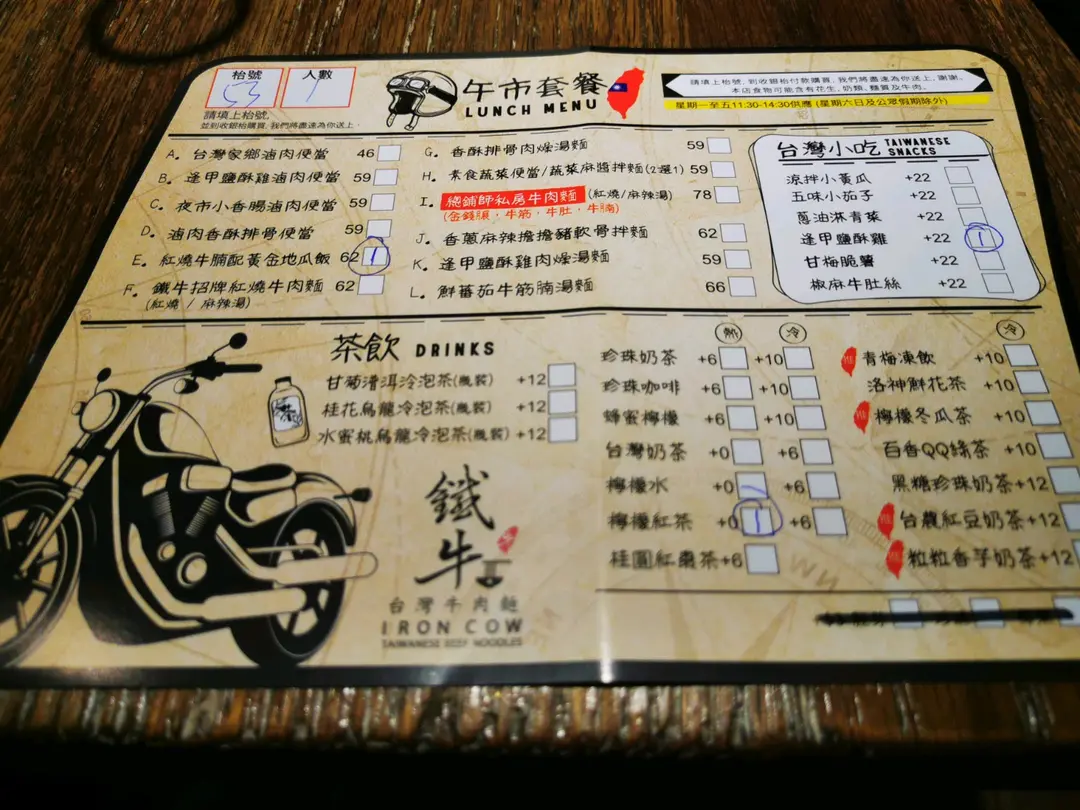 枱號
53
人數
1
請填上枱號,
並到收銀枱購買, 我們將盡速為你送上。
午市套餐
LUNCH MENU
請填上枱號, 到收銀枱付款購買, 我們將盡速為你送上, 謝謝。
本店食物可能含有花生, 奶類, 麵質及牛肉。
星期一至五11:30-14:30供應 (星期六日及公眾假期除外)
A. 台灣家鄉滷肉便當 46
B. 逢甲鹽酥雞滷肉便當 59
C. 夜市小香腸滷肉便當 59
D. 滷肉香酥排骨便當 59
E. 紅燒牛腩配黃金地瓜飯 62 1
F. 鐵牛招牌紅燒牛肉麵 62
(紅燒 / 麻辣湯)
G. 香酥排骨肉燥湯麵 59
H. 素食蔬菜便當/蔬菜麻醬拌麵(2選1) 59
I. 總鋪師私房牛肉麵 (紅燒/麻辣湯) 78
(金錢腱, 牛筋, 牛肚, 牛腩)
J. 香蔥麻辣擔擔豬軟骨拌麵 62
K. 逢甲鹽酥雞肉燥湯麵 59
L. 鮮蕃茄牛筋腩湯麵 66
台灣小吃 TAIWANESE SNACKS
涼拌小黃瓜 +22
五味小茄子 +22
蔥油淋青菜 +22
逢甲鹽酥雞 +22 1
甘梅脆薯 +22
椒麻牛肚絲 +22
茶飲 DRINKS
甘菊潽洱冷泡茶(瓶裝) +12
桂花烏龍冷泡茶(瓶裝) +12
水蜜桃烏龍冷泡茶(瓶裝) +12
鐵牛
台灣牛肉麵
IRON COW
TAIWANESE BEEF NOODLES
熱 冷
珍珠奶茶 +6 +10
珍珠咖啡 +6 +10
蜂蜜檸檬 +6 +10
台灣奶茶 +0 +6
檸檬水 +0 +6
檸檬紅茶 +0 1 +6
桂圓紅棗茶+6
冷
推 青梅凍飲 +10
洛神鮮花茶 +10
推 檸檬冬瓜茶 +10
百香QQ綠茶 +10
黑糖珍珠奶茶+12
推 台農紅豆奶茶+12
推 粒粒香芋奶茶+12